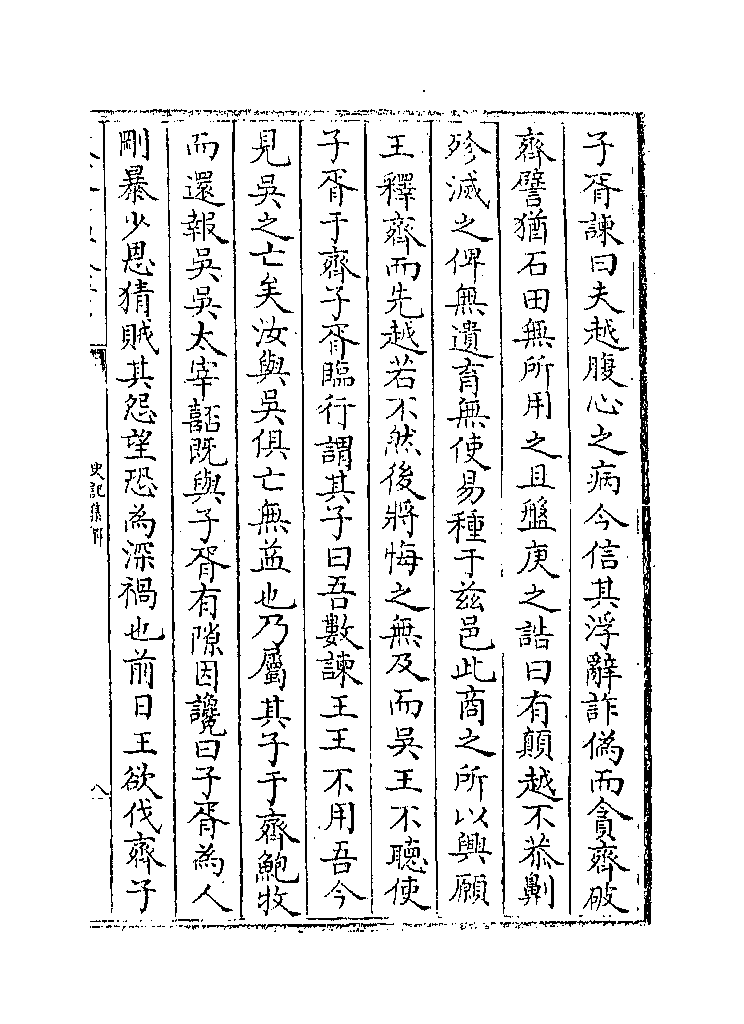 子胥諫曰夫越腹心之病今信其浮辭詐偽而貪齊破
齊譬猶石田無所用之且盤庚之誥曰有顛越不恭劓
殄滅之俾無遺育無使易種于茲邑此商之所以興願
王釋齊而先越若不然後將悔之無及而吳王不聽使
子胥于齊子胥臨行謂其子曰吾數諫王王不用吾今
見吳之亡矣汝與吳俱亡無益也乃屬其子于齊鮑牧
而還報吳吳太宰嚭既與子胥有隙因讒曰子胥為人
剛暴少恩猜賊其怨望恐為深禍也前日王欲伐齊子
史記集解
八